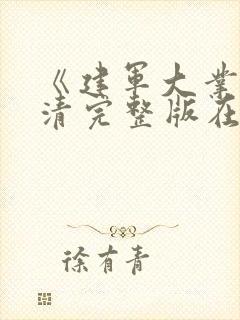 《建军大业
清完整版在
徐有青